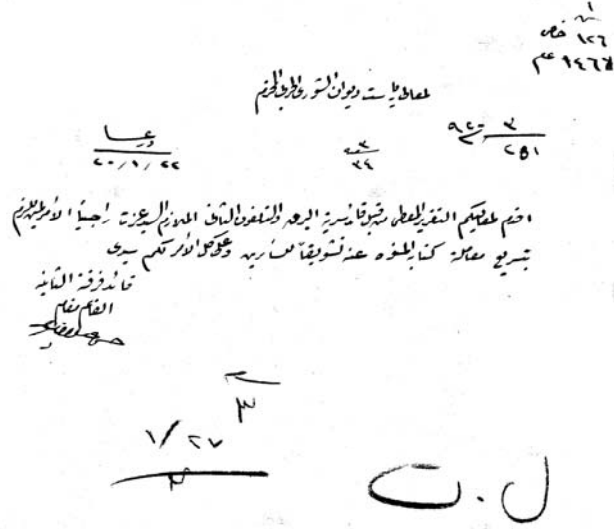 ١٢٦ خص
١٤٦٧ عم
لمعالي رياست ديوان الشورى الحربي المحترم
٣
٢٥١
٣
٣٤
درعا
٢٠/١/٢٢
اقدم لمعاليكم التقرير المعطى من قبل قائد سرية البرق والتلفون الثاني الملازم السيد عزت راجياً الأمر لمن يلزم
بتسريع معاملة كتابه المنوه عنه تشويقاً للسائرين وعلى كل الأمر لكم سيدي
قائد فرقة الثانية
القائم مقام
٣
١/٢٧
٣
ل.ت